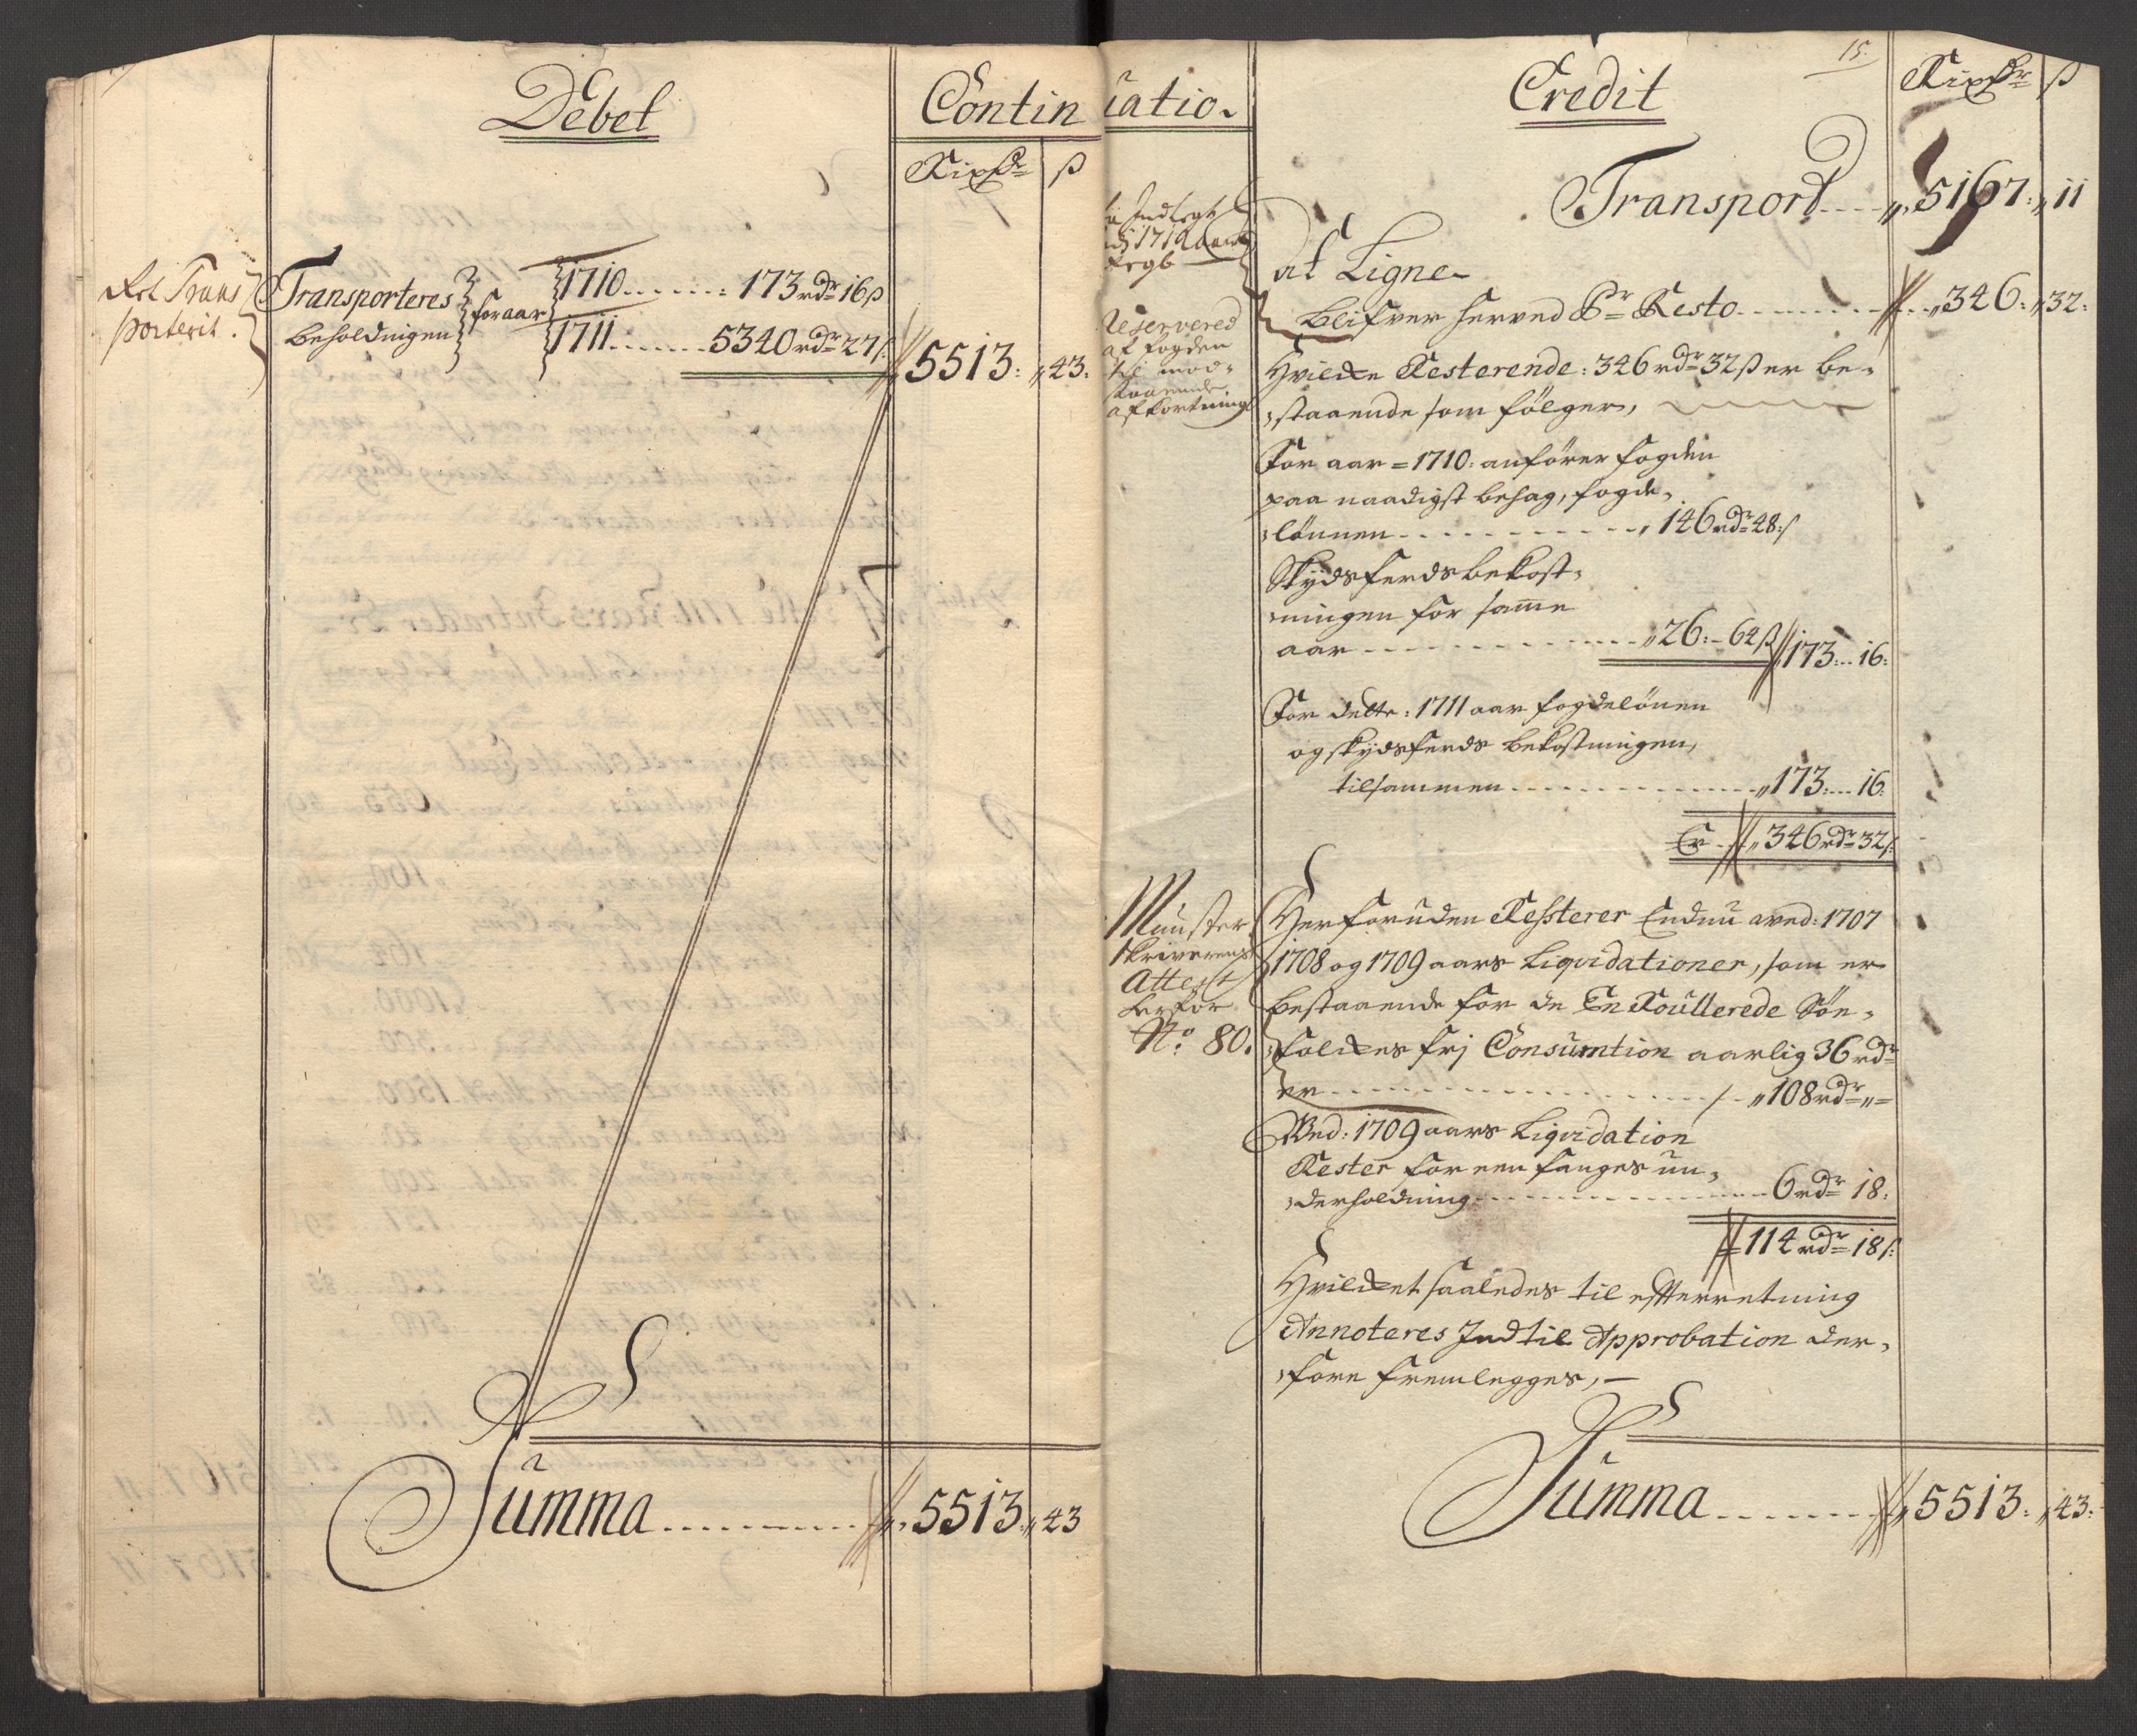 Debet
Contin
Rixdr ß
Ret Trans
porterit.
Transporteres
beholdnigen
for aar
1710 ...... 173 rdr 16 ß
1711 ...... 5340 rdr 27 ß
5513: 43:
Summa .......... 5513 43
uatio.
15.
Credit
Rixdr ß
Transport .... 5167: 11
1710
Reservered
af fogden
til
afkortning
At Ligne
blifver herved Pr Resto ........ 346: 32:
Hvilcke Resterende: 346 rdr 32 ß er be-
staaende som fölger,
For aar 1710: anförer fogden
paa naadigst behag, fogde-
lönnen .......... 146 rdr 48 ß
Skydsferds bekost-
ningen for samme
aar .......... 26: 64 ß 173: 16:
For dette: 1711 aar fogdelönen
og skydsferds bekostningen,
tilsammen .......... 173: 16:
Er 346 rdr 32 ß
Münster
skriverens
Attest
herfor
No: 80.
Herforuden Resterer Endnu ved: 1707
1708 og 1709 aars Liqvidationer, som er
bestaaende for de En Roullerede Söe-
folckes frj Consumtion aarlig 36 rdr
er .......... 108 rdr
Wed: 1709 aars Liqvidation
Rester for een fanges un-
derholdning .......... 6 rdr 18:
114 rdr 18 ß
Hvilcket saaledes til efterretning
Annoteres Indtil Approbation der-
fore fremlegges,
Summa ....... 5513: 43: